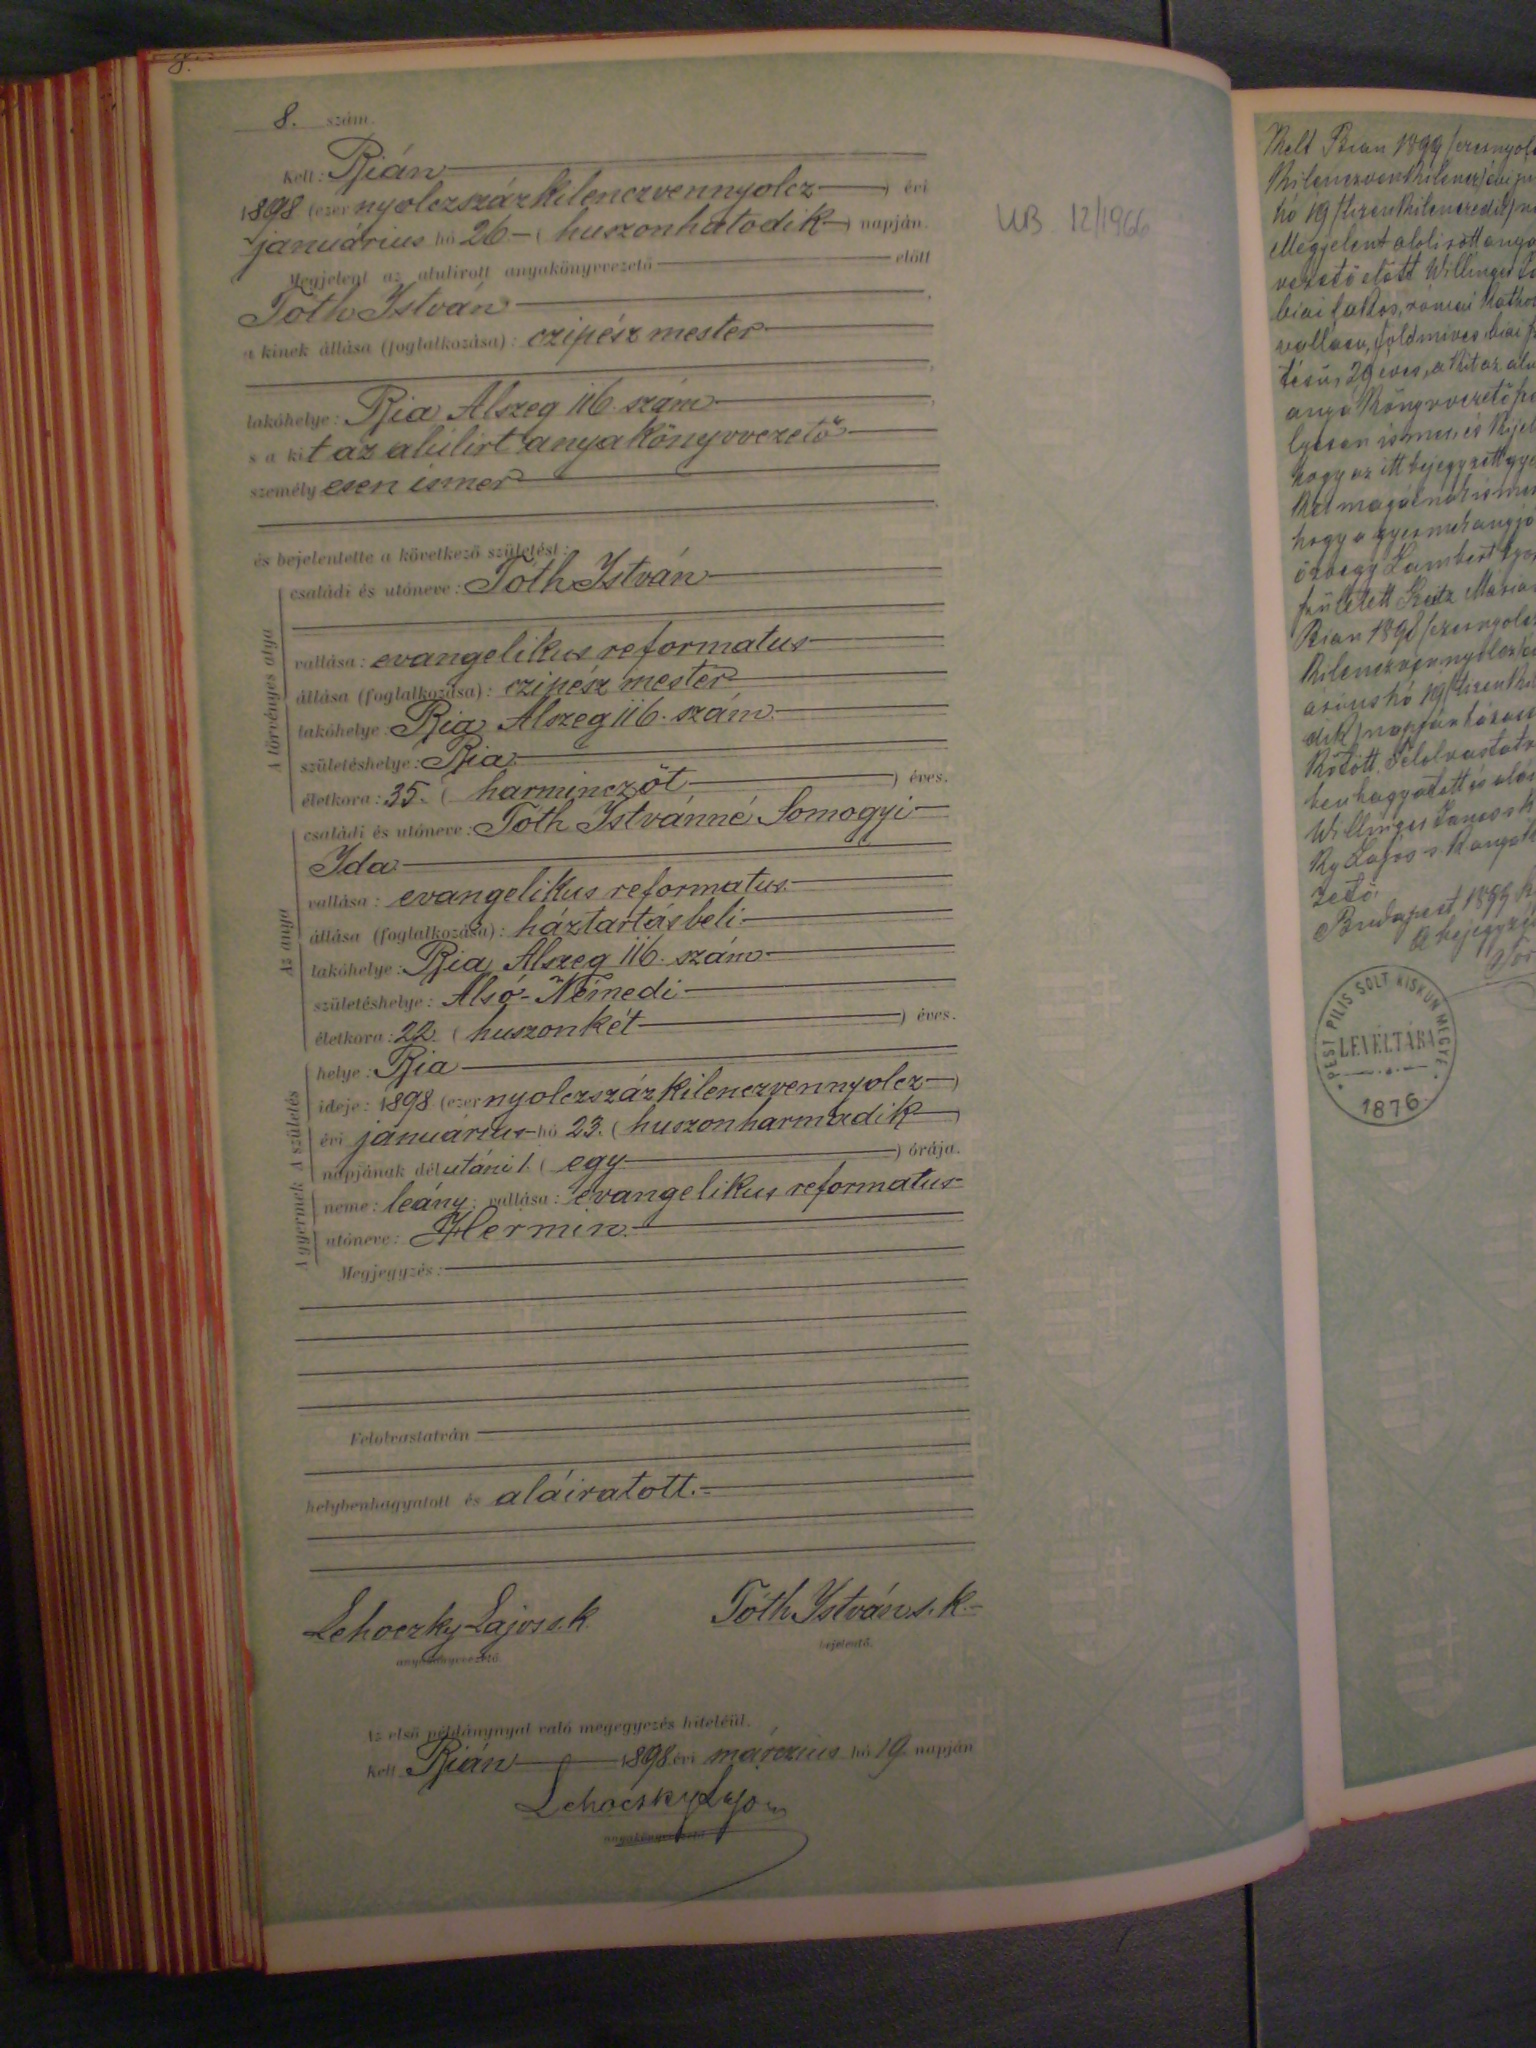 8.
8. szám.
Kelt: Bián
1898 (ezernyolczszázkilenczvennyolcz) évi
január​ius hó 26 (huszonhatodik) napján.
Megjelent az alulirott anyakönyvvezető előtt
Tóth István,
a kinek állása (foglalkozása): czipész mester
lakóhelye: Bia Alszeg 116. szám,
s a kit az alulirt anyakönyvvezető
személyesen ismer
és bejelentette a következő születést:
A törvényes atya
családi és utóneve: Tóth István
vallása: evangelikus reformatus
állása (foglalkozása): czipész mester
lakóhelye: Bia Alszeg 116. szám.
születéshelye: Bia
életkora: 35. (harminczöt) éves.
Az anya
családi és utóneve: Tóth Istvánné Somogyi
Ida
vallása: evangelikus reformatus.
állása (foglalkozása): háztartásbeli
lakóhelye: Bia Alszeg 116. szám
születéshelye: Alsó-Némedi
életkora: 22. (huszonkét) éves.
A gyermek A születés
helye: Bia
ideje: 1898 (ezernyolczszázkilenczvennyolcz)
évi január​ius hó 23. (huszonharmadik)
napjának délutáni 1. (egy) órája.
neme: leány; vallása: evangelikus reformatus
utóneve: Hermin.
Megjegyzés:
Felolvastatván
helybenhagyatott és aláiratott.
Lehoczky Lajos s.k. Tóth István s.k.
anyakönyvvezető. bejelentő.
Az első példánynyal való megegyezés hiteléül.
Kelt Bián 1898 évi márczius hó 19. napján
Lehoczky Lajos
anyakönyvvezető
UB 12/1966
Kelt Bian 1899
hó 19
Megjelent
vezető előtt Willinger
biai lakos, római
vallásu, földmives, biai
29 éves, a kit az
anyakönyvvezető
ismer, és
hogy az itt bejegyzett
magáénak
hogy a gyermek anyjá
özvegy Lambert
született Seitz Máriá
Bian 1898
hó 19
dik) napján
kötött. Felolvastatv
benhagyatott és
Willinger János
ky Lajos
zető.
Budapest, 1899
PEST PILIS SOLT KISKUN MEGYE
LEVÉLTÁRA
1876